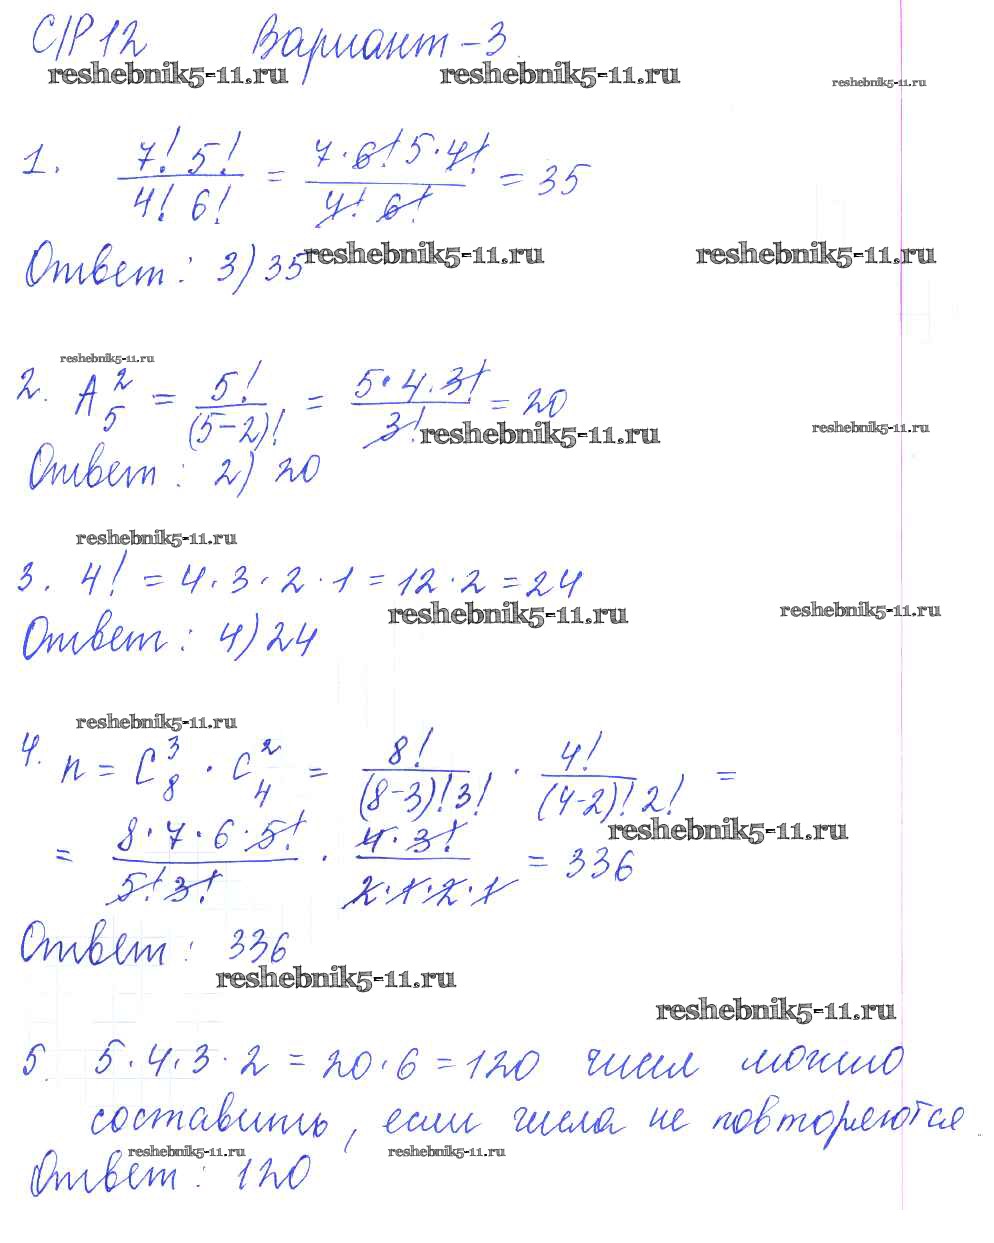 С/Р 12 Вариант - 3
reshebnik5-11.ru reshebnik5-11.ru reshebnik5-11.ru
1. 7! 5! / 4! 6! = 7·6! 5·4! / 4! 6! = 35
Ответ: 3) 35 reshebnik5-11.ru reshebnik5-11.ru
reshebnik5-11.ru
2. A₅² = 5! / (5-2)! = 5·4·3! / 3! = 20
reshebnik5-11.ru reshebnik5-11.ru
Ответ: 2) 20
reshebnik5-11.ru
3. 4! = 4·3·2·1 = 12·2 = 24
reshebnik5-11.ru reshebnik5-11.ru
Ответ: 4) 24
reshebnik5-11.ru
4. n = C₈³ · C₄² = 8! / (8-3)! 3! · 4! / (4-2)! 2! =
reshebnik5-11.ru
= 8·7·6·5! / 5! 3! · 4·3! / 2·1·2·1 = 336
Ответ: 336
reshebnik5-11.ru
reshebnik5-11.ru
5. 5·4·3·2 = 20·6 = 120 чисел можно
составить, если числа не повторяются
reshebnik5-11.ru reshebnik5-11.ru
Ответ: 120